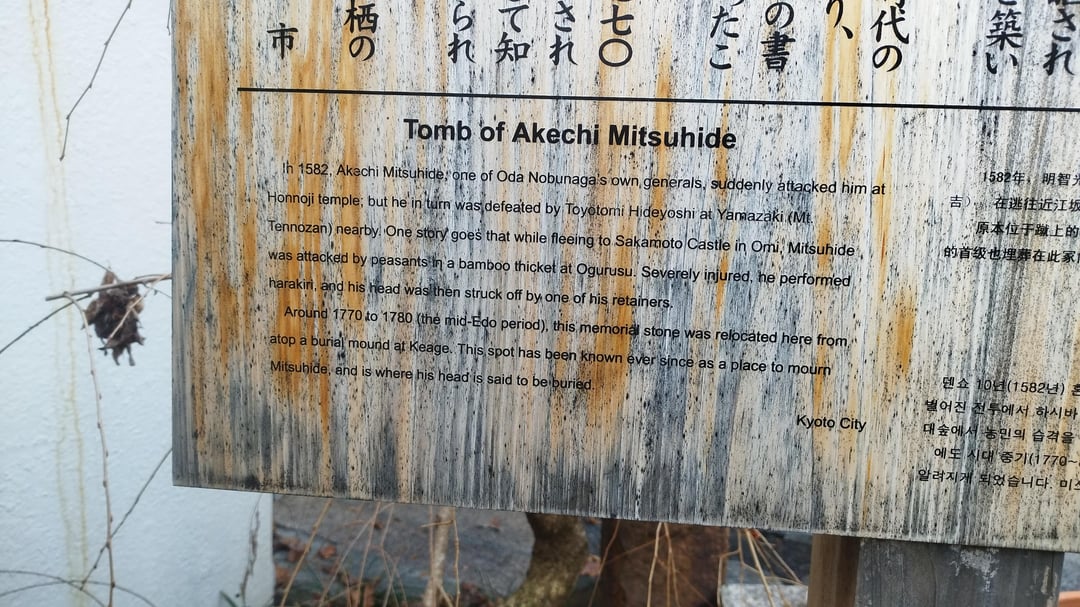 栖の
市
られ
て知
され
七〇
たこ
の書
り、
代の
築い
され
Tomb of Akechi Mitsuhide
In 1582, Akechi Mitsuhide, one of Oda Nobunaga's own generals, suddenly attacked him at
Honnoji temple; but he in turn was defeated by Toyotomi Hideyoshi at Yamazaki (Mt.
Tennozan) nearby. One story goes that while fleeing to Sakamoto Castle in Omi, Mitsuhide
was attacked by peasants in a bamboo thicket at Ogurusu. Severely injured, he performed
harakiri, and his head was then struck off by one of his retainers.
Around 1770 to 1780 (the mid-Edo period), this memorial stone was relocated here from
atop a burial mound at Keage. This spot has been known ever since as a place to mourn
Mitsuhide, and is where his head is said to be buried.
Kyoto City
1582年，明智光
吉）。在逃往近江坂
原本位于蹴上的
的首级也埋葬在此家
덴쇼 10년(1582년) 혼
벌어진 전투에서 하시바
대숲에서 농민의 습격을
에도 시대 중기(1770~
알려지게 되었습니다. 미츠